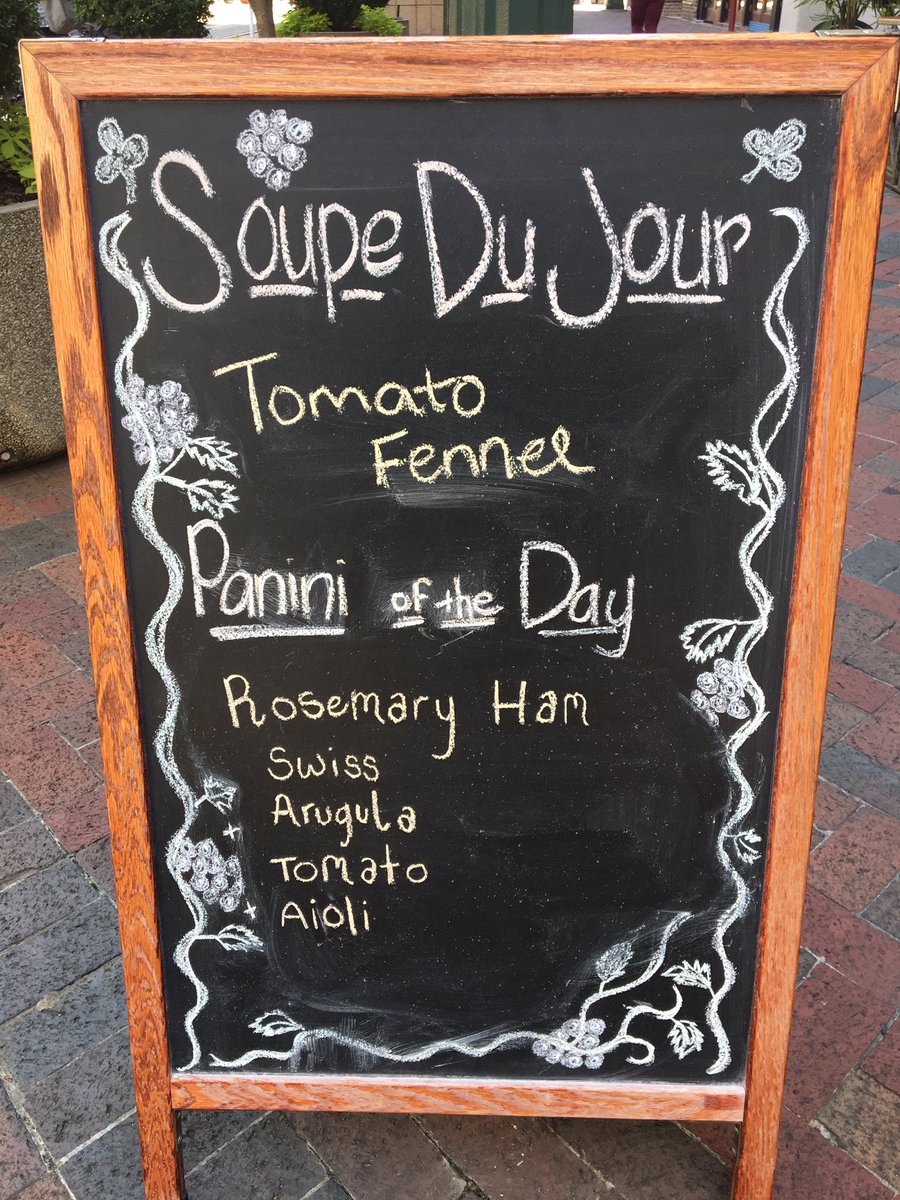 Soupe Du Jour
Tomato
Fennel
Panini of the Day
Rosemary Ham
Swiss
Arugula
Tomato
Aioli